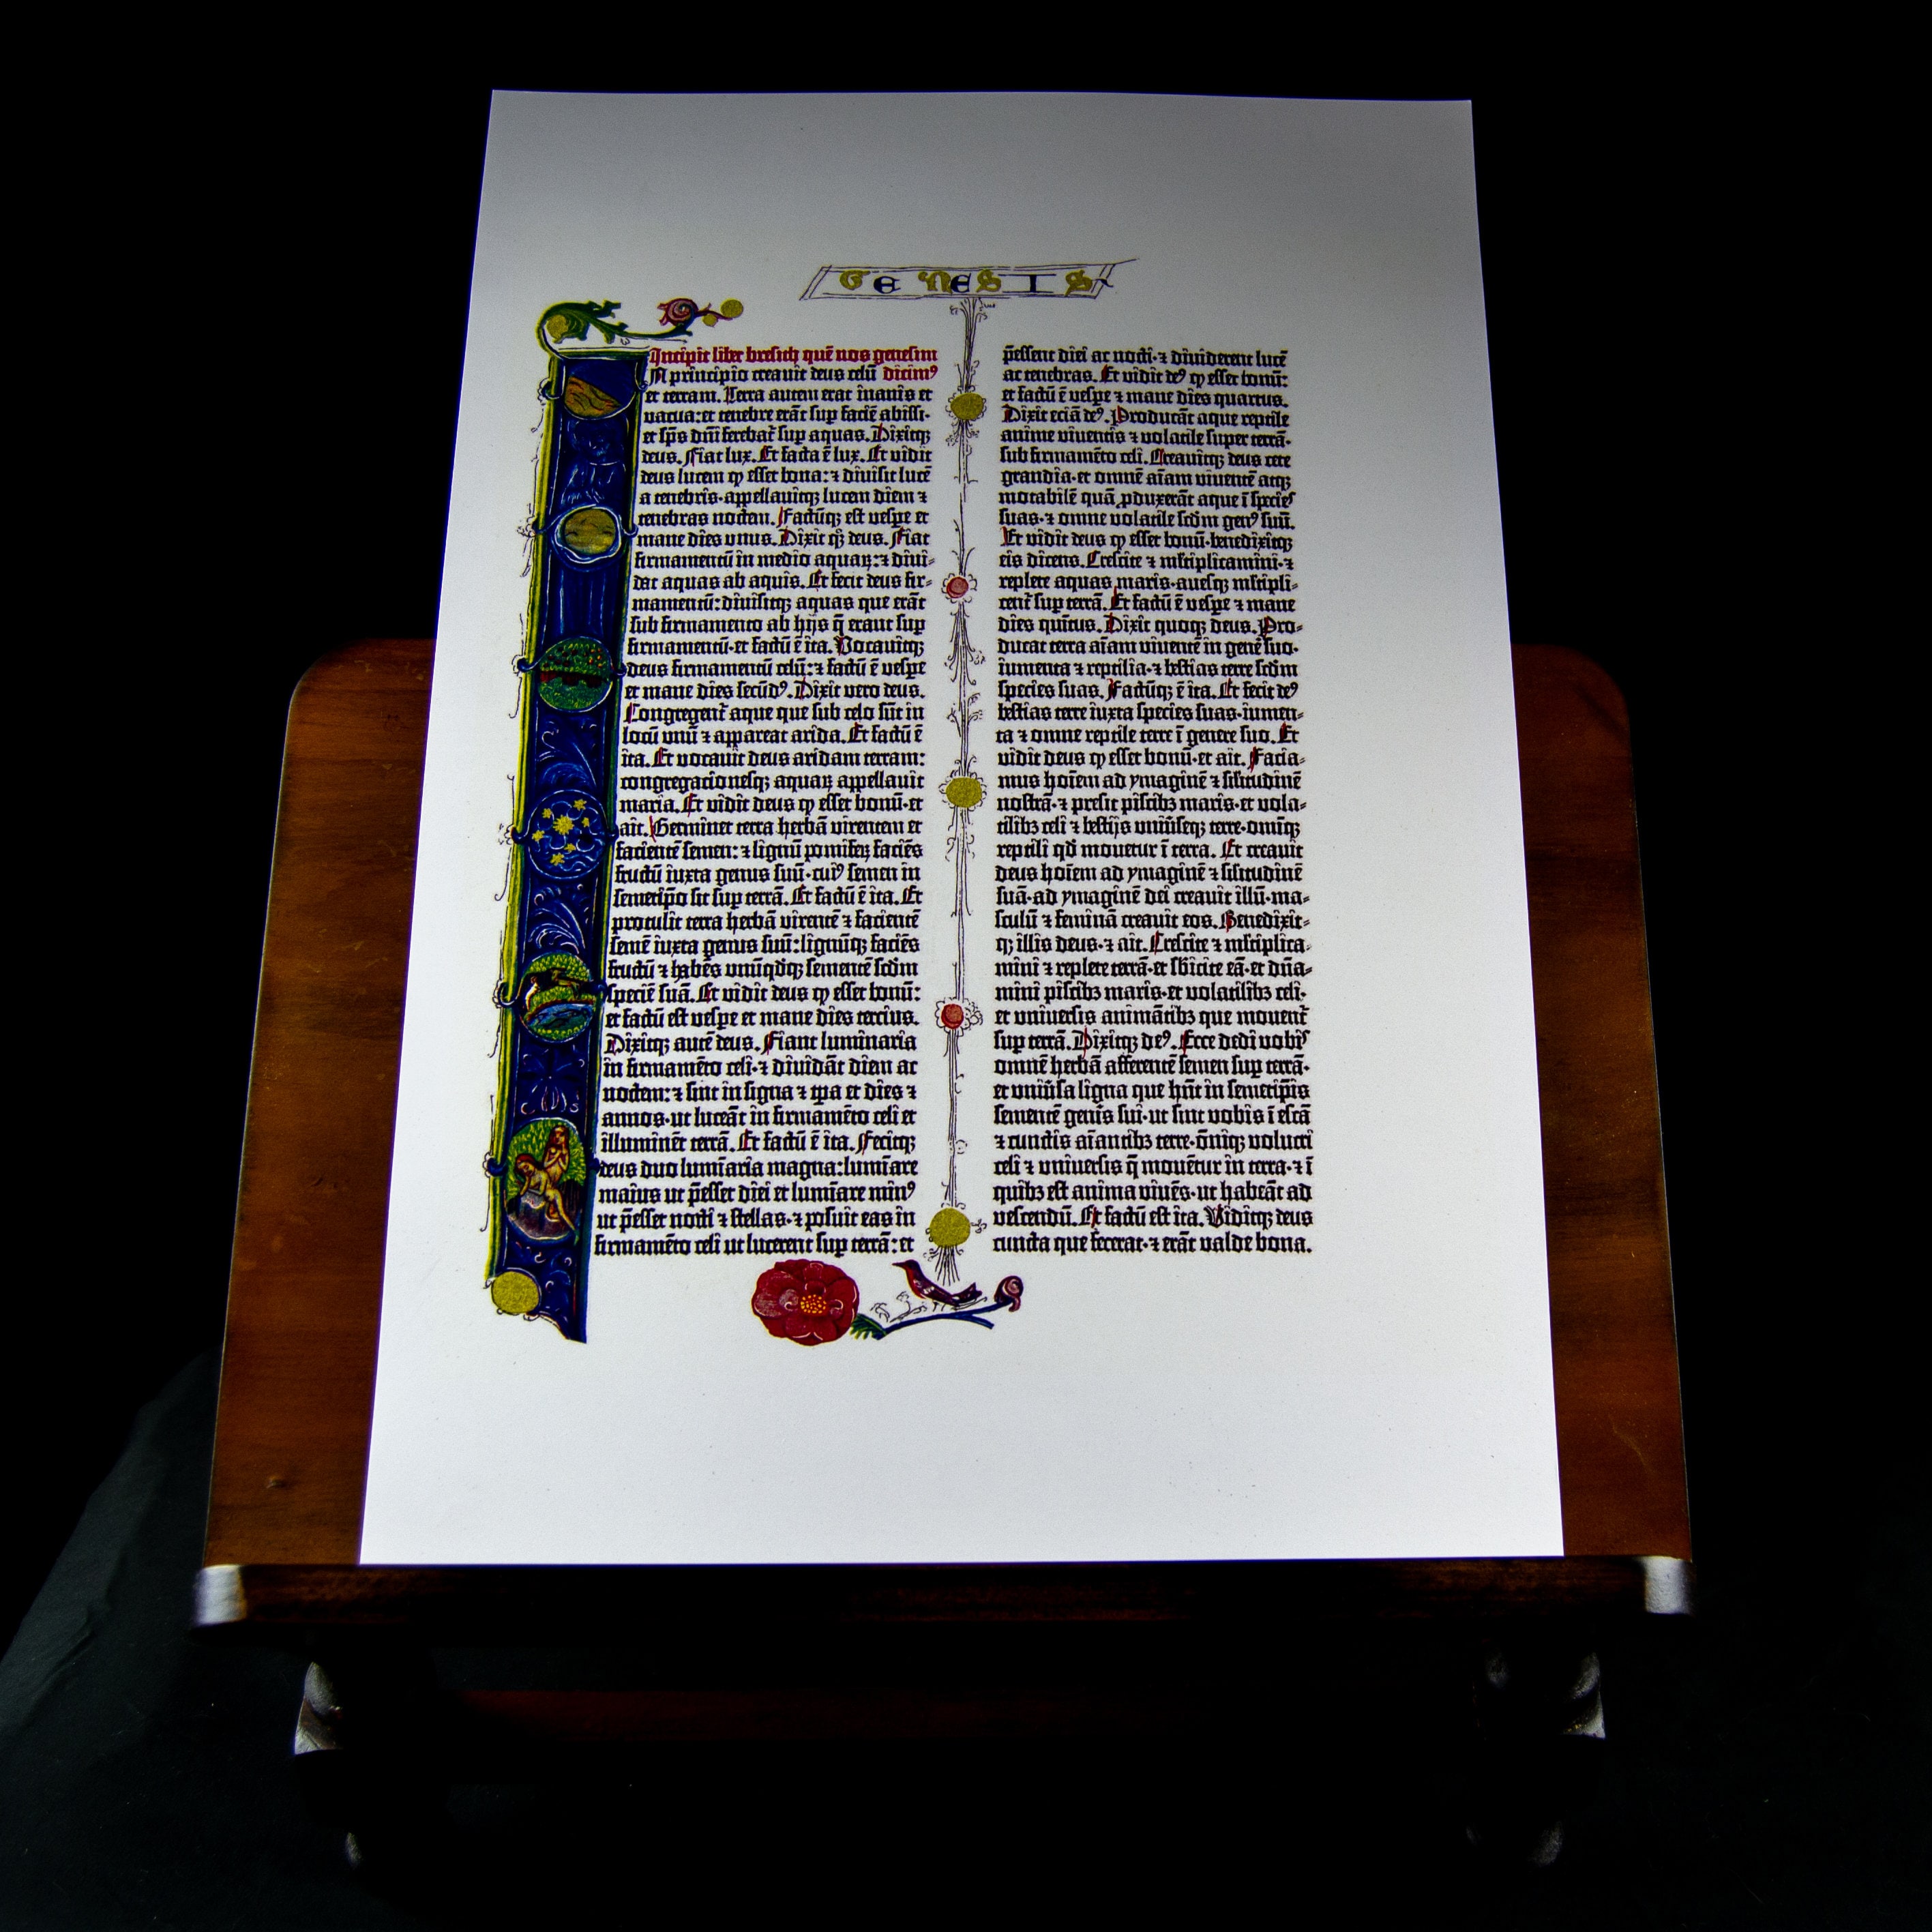 GENESIS
Incipit liber bresith quē nos genesim
In principio creauit deus celū dicimꝰ
et terram. Terra autem erat inanis et
vacua: et tenebre erāt ſup faciē abiſſi·
et ſpūs dñi ferebat̄ ſup aquas. Dixitqꝫ
deus. Fiat lux. Et facta ē lux. Et vidit
deus lucem ꝙ eſſet bona: ⁊ diuiſit lucē
a tenebris·appellauitqꝫ lucem diem ⁊
tenebras noctem. Factūqꝫ eſt veſpe et
mane dies vnus. Dixit qꝫ deus. Fiat
firmamentū in medio aquaꝝ: ⁊ diui-
dat aquas ab aquis. Et fecit deus fir-
mamentū: diuiſitqꝫ aquas que erāt
ſub firmamento ab hijs q̄ erant ſup
firmamentū·et factū ē ita. Vocauitqꝫ
deus firmamentū celū: ⁊ factū ē veſpe
et mane dies ſecūdꝰ. Dixit vero deus.
Congregent̄ aque que ſub celo ſūt in
locū vnū ⁊ appareat arida. Et factū ē
ita. Et vocauit deus aridam terram:
congregacioneſqꝫ aquaꝝ appellauit
maria. Et vidit deus ꝙ eſſet bonū·et
ait. Germinet terra herbā virentem et
facientē ſemen: ⁊ lignū pomifeꝝ faciēs
fructū iuxta genus ſuū·cuiꝰ ſemen in
ſemetipo ſit ſup terrā. Et factū ē ita. Et
protulit terra herbā virentē ⁊ facientē
ſemē iuxta genus ſuū: lignūqꝫ faciēs
fructū ⁊ habēs vnūqdqꝫ ſementē ſcdm
ſpeciē ſuā. Et vidit deus ꝙ eſſet bonū:
et factū eſt veſpe et mane dies tercius.
Dixitqꝫ autē deus. Fiant luminaria
in firmamēto celi·⁊ diuidāt diem ac
noctem: ⁊ ſint in ſigna ⁊ tpa et dies ⁊
annos·ut luceāt in firmamēto celi et
illuminēt terrā. Et factū ē ita. Fecitqꝫ
deus duo luminaria magna: luminare
maius ut p̄eſſet diei et luminare minꝰ
ut p̄eſſet nocti ⁊ ſtellas·⁊ poſuit eas in
firmamēto celi ut lucerent ſup terrā: et
p̄eſſent diei ac nocti·⁊ diuiderent lucē
ac tenebras. Et vidit deꝰ ꝙ eſſet bonū:
et factū ē veſpe ⁊ mane dies quartus.
Dixit eciā deꝰ. Producāt aque reptile
anime viuentis ⁊ volatile ſuper terrā·
ſub firmamēto celi. Creauitqꝫ deus cete
grandia·et omnē aīam viuentē atqꝫ
motabilē quā ꝓduxerāt aque ī ſpecies
ſuas·⁊ omne volatile ſcdm genꝰ ſuū.
Et vidit deus ꝙ eſſet bonū·benedixitqꝫ
eis dicens. Creſcite ⁊ mltiplicamini·⁊
replete aquas maris·aueſqꝫ mltipli-
cent̄ ſup terrā. Et factū ē veſpe ⁊ mane
dies quītus. Dixit quoqꝫ deus. Pro-
ducat terra aīam viuentē in genē ſuo·
iumenta ⁊ reptilia·⁊ beſtias terre ſcdm
ſpecies ſuas. Factūqꝫ ē ita. Et fecit deꝰ
beſtias terre iuxta ſpecies ſuas·iumen-
ta ⁊ omne reptile terre ī genere ſuo. Et
vidit deus ꝙ eſſet bonū·et ait. Facia-
mus hoīem ad ymaginē ⁊ ſilitudinē
noſtrā·⁊ preſit piſcibꝫ maris·et vola-
tilibꝫ celi ⁊ beſtijs vniūſeqꝫ terre·omīqꝫ
reptili qd mouetur ī terra. Et creauit
deus hoīem ad ymaginē ⁊ ſilitudinē
ſuā·ad ymaginē dei creauit illū·ma-
ſculū ⁊ feminā creauit eos. Benedixit-
qꝫ illis deus·⁊ ait. Creſcite ⁊ mltiplica-
mini ⁊ replete terrā·et ſbicite eā·et dña-
mini piſcibꝫ maris·et volatilibꝫ celi·
et vniuerſis animātibꝫ que mouent̄
ſup terrā. Dixitqꝫ deꝰ. Ecce dedi vobis
omnē herbā afferentē ſemen ſup terrā·
et vniūſa ligna que hñt in ſemetipis
ſementē genis ſui·ut ſint vobis ī eſcā
⁊ cunctis aīantibꝫ terre·ōniqꝫ volucri
celi ⁊ vniuerſis q̄ mouētur in terra·⁊ ī
quibꝫ eſt anima viuēs·ut habeāt ad
veſcendū. Et factū eſt ita. Viditqꝫ deus
cuncta que fecerat·⁊ erāt valde bona.